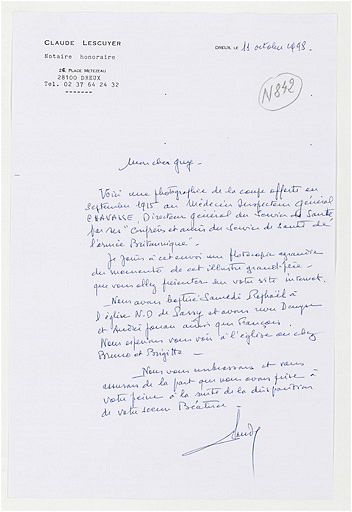 CLAUDE LESCUYER
Notaire honoraire
24, PLACE METEZEAU
28100 DREUX
Tel. 02 37 64 24 32
DREUX, LE 11 octobre 1998.
N842
Mon cher Guy.
Voici une photographie de la coupe offerte en
septembre 1915 au Médecin Inspecteur général
CHAVASSE, Directeur général du Service de Santé
par ses "Confrères et amis du Service de Santé de
l'armée Britannique".
Je joins à cet envoi une photocopie agrandie
du monument de cet illustre grand-père
que vous allez présenter sur votre site internet.
Nous avons baptisé Samedi Raphaël à
l'église N.D de Sassy et avons revu
et André Jouan ainsi que François.
Nous espérions vous voir à l'église ou chez
Bruno et Brigitte -
Nous vous embrassons et vous
assurons de la part que nous avons prise à
votre peine à la suite de la disparition
de votre soeur Béatrice -
Claude